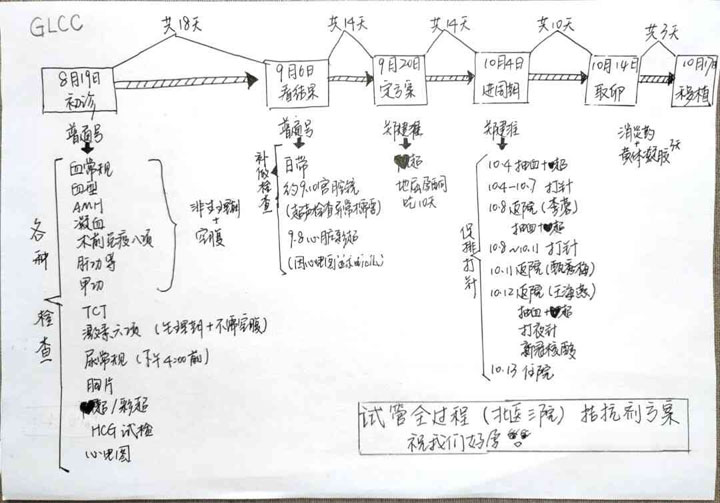 GLCC
共18天
共14天
共14天
共10天
共3天
8月19日
初诊
9月6日
看结果
9月20日
定方案
10月4日
进周期
10月14日
取卵
10月17日
移植
普通号
普通号
郑建淮
郑建淮
消炎药
+
黄体凝胶3天
各种检查
血常规
血型
AMH
凝血
术前免疫八项
肝功等
甲功
非生理期
+
空腹
TCT
激素六项（生理期+不需空腹）
尿常规（下午4:00前）
胸片
超/彩超
HCG试检
心电图
补做检查
白带
约9.10宫腔镜
9.8心脏彩超
超
地屈孕酮
吃10天
促排打针
10.4 抽血+超
10.4-10.7 打针
10.8 返院（李蓉）
抽血+超
10.8~10.11 打针
10.11 返院
10.12 返院（王海燕）
抽血+超
打夜针
新冠核酸
10.13 住院
试管全过程（北医三院）拮抗剂方案
祝我们好孕